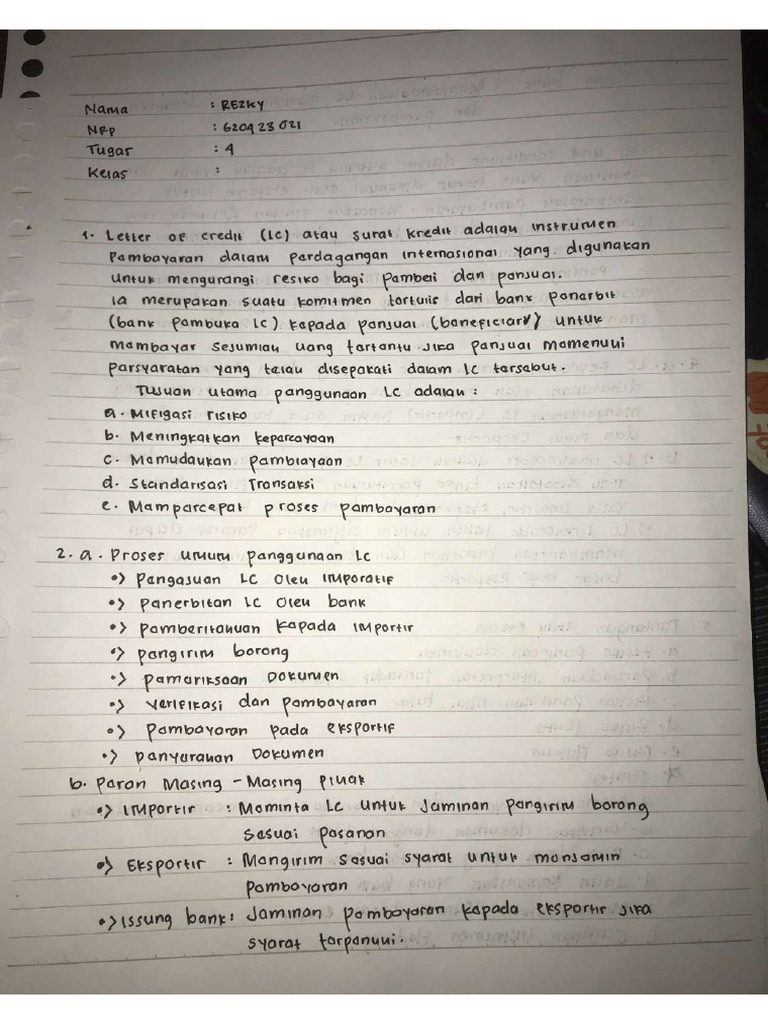 Nama : REZKY
NRP : 620423021
Tugas : 4
Kelas :
1. Letter of credit (LC) atau surat kredit adalah instrumen
Pembayaran dalam perdagangan internasional yang digunakan
untuk mengurangi resiko bagi pembeli dan penjual.
Ia merupakan suatu komitmen tertulis dari bank penerbit
(bank pembuka LC) kepada penjual (beneficiary) untuk
membayar sesumlah uang tertentu jika penjual memenuhi
persyaratan yang telah disepakati dalam LC tersebut.
Tujuan utama penggunaan LC adalah :
a. Mitigasi risiko
b. Meningkatkan kepercayaan
c. Memudahkan pembiayaan
d. Standarisasi Transaksi
e. Mempercepat proses pembayaran
2. a. Proses umum penggunaan LC
•> Pengajuan LC oleh importif
•> penerbitan LC oleh bank
•> pemberitahuan kepada importir
•> pengirim borong
•> pemeriksaan Dokumen
•> verifikasi dan pembayaran
•> pembayaran pada eksportif
•> penyerahan Dokumen
b. Peran Masing - Masing pihak
•> Importir : Meminta LC untuk Jaminan pengirim borong
sesuai pesanan
•> Eksportir : Mengirim sesuai syarat untuk menjamin
pembayaran
•> Issung bank : Jaminan pembayaran kepada eksportir jika
syarat terpenuhi.